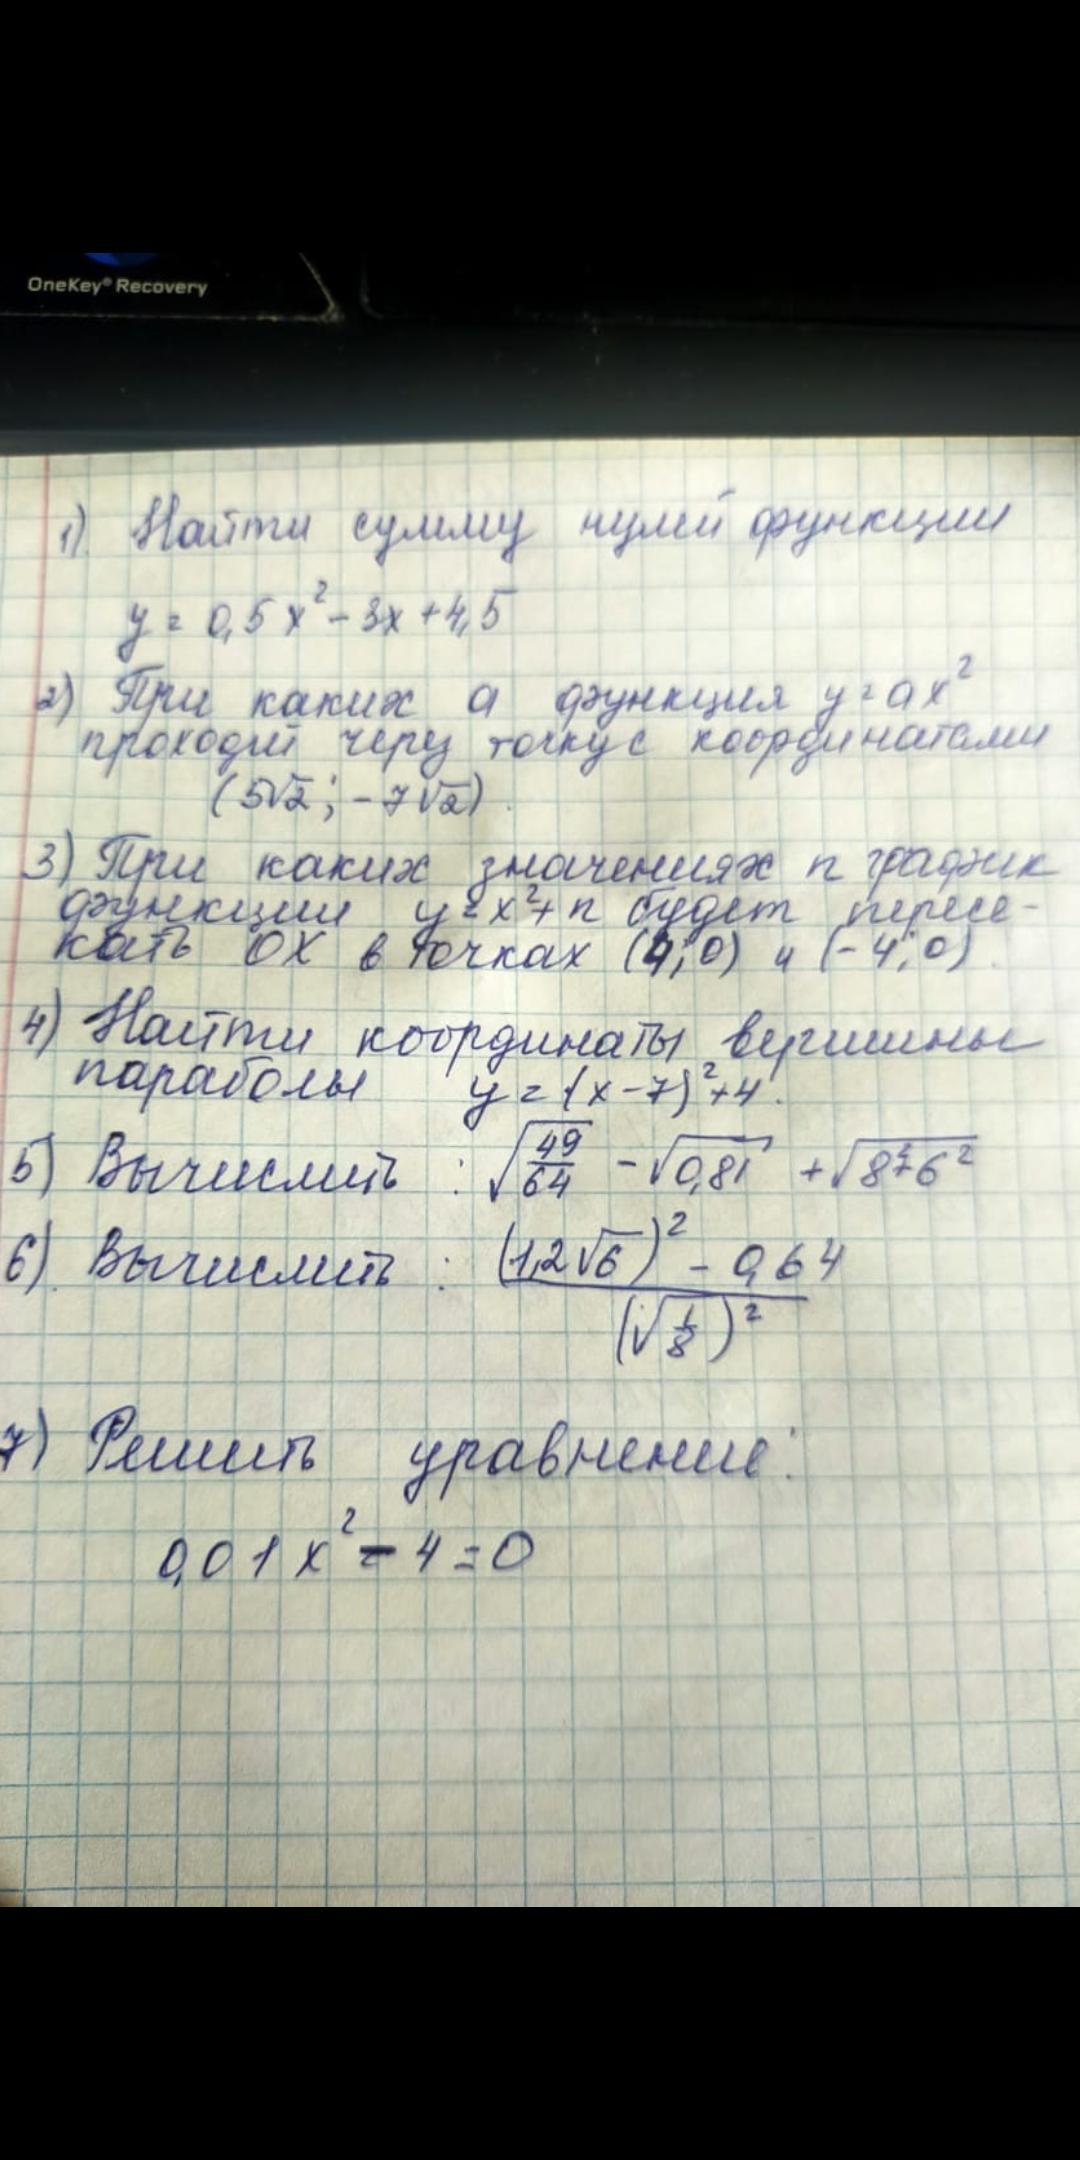 OneKey® Recovery
1). Найти сумму нулей функции
y = 0,5x² - 3x + 4,5
2) При каких a функция y = ax²
проходит через точку с координатами
(5√2; -7√2).
3) При каких значениях n график
функции y = x² + n будет пересе-
кать OX в точках (4; 0) и (-4; 0).
4) Найти координаты вершины
параболы y = (x - 7)² + 4.
5) Вычислить : √(49/64) - √0,81 + √(8² + 6²)
6). Вычислить : ((1,2√6)² - 0,64) / (√(1/8))²
7) Решить уравнение:
0,01x² - 4 = 0